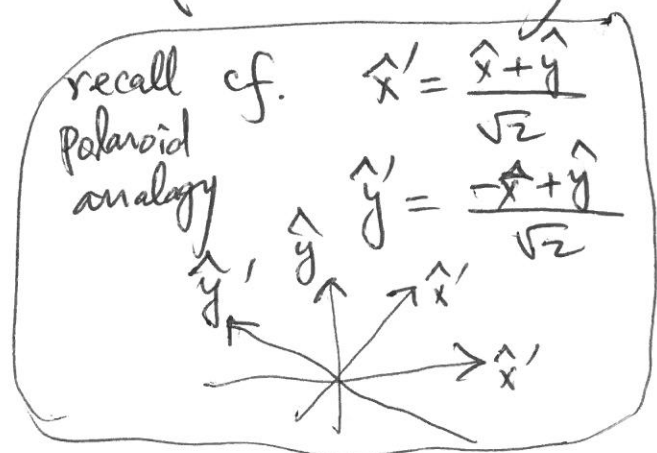 recall cf. x̂′ = (x̂ + ŷ)/√2
Polaroid
analogy ŷ′ = (-x̂ + ŷ)/√2
ŷ′ ŷ x̂′
x̂′